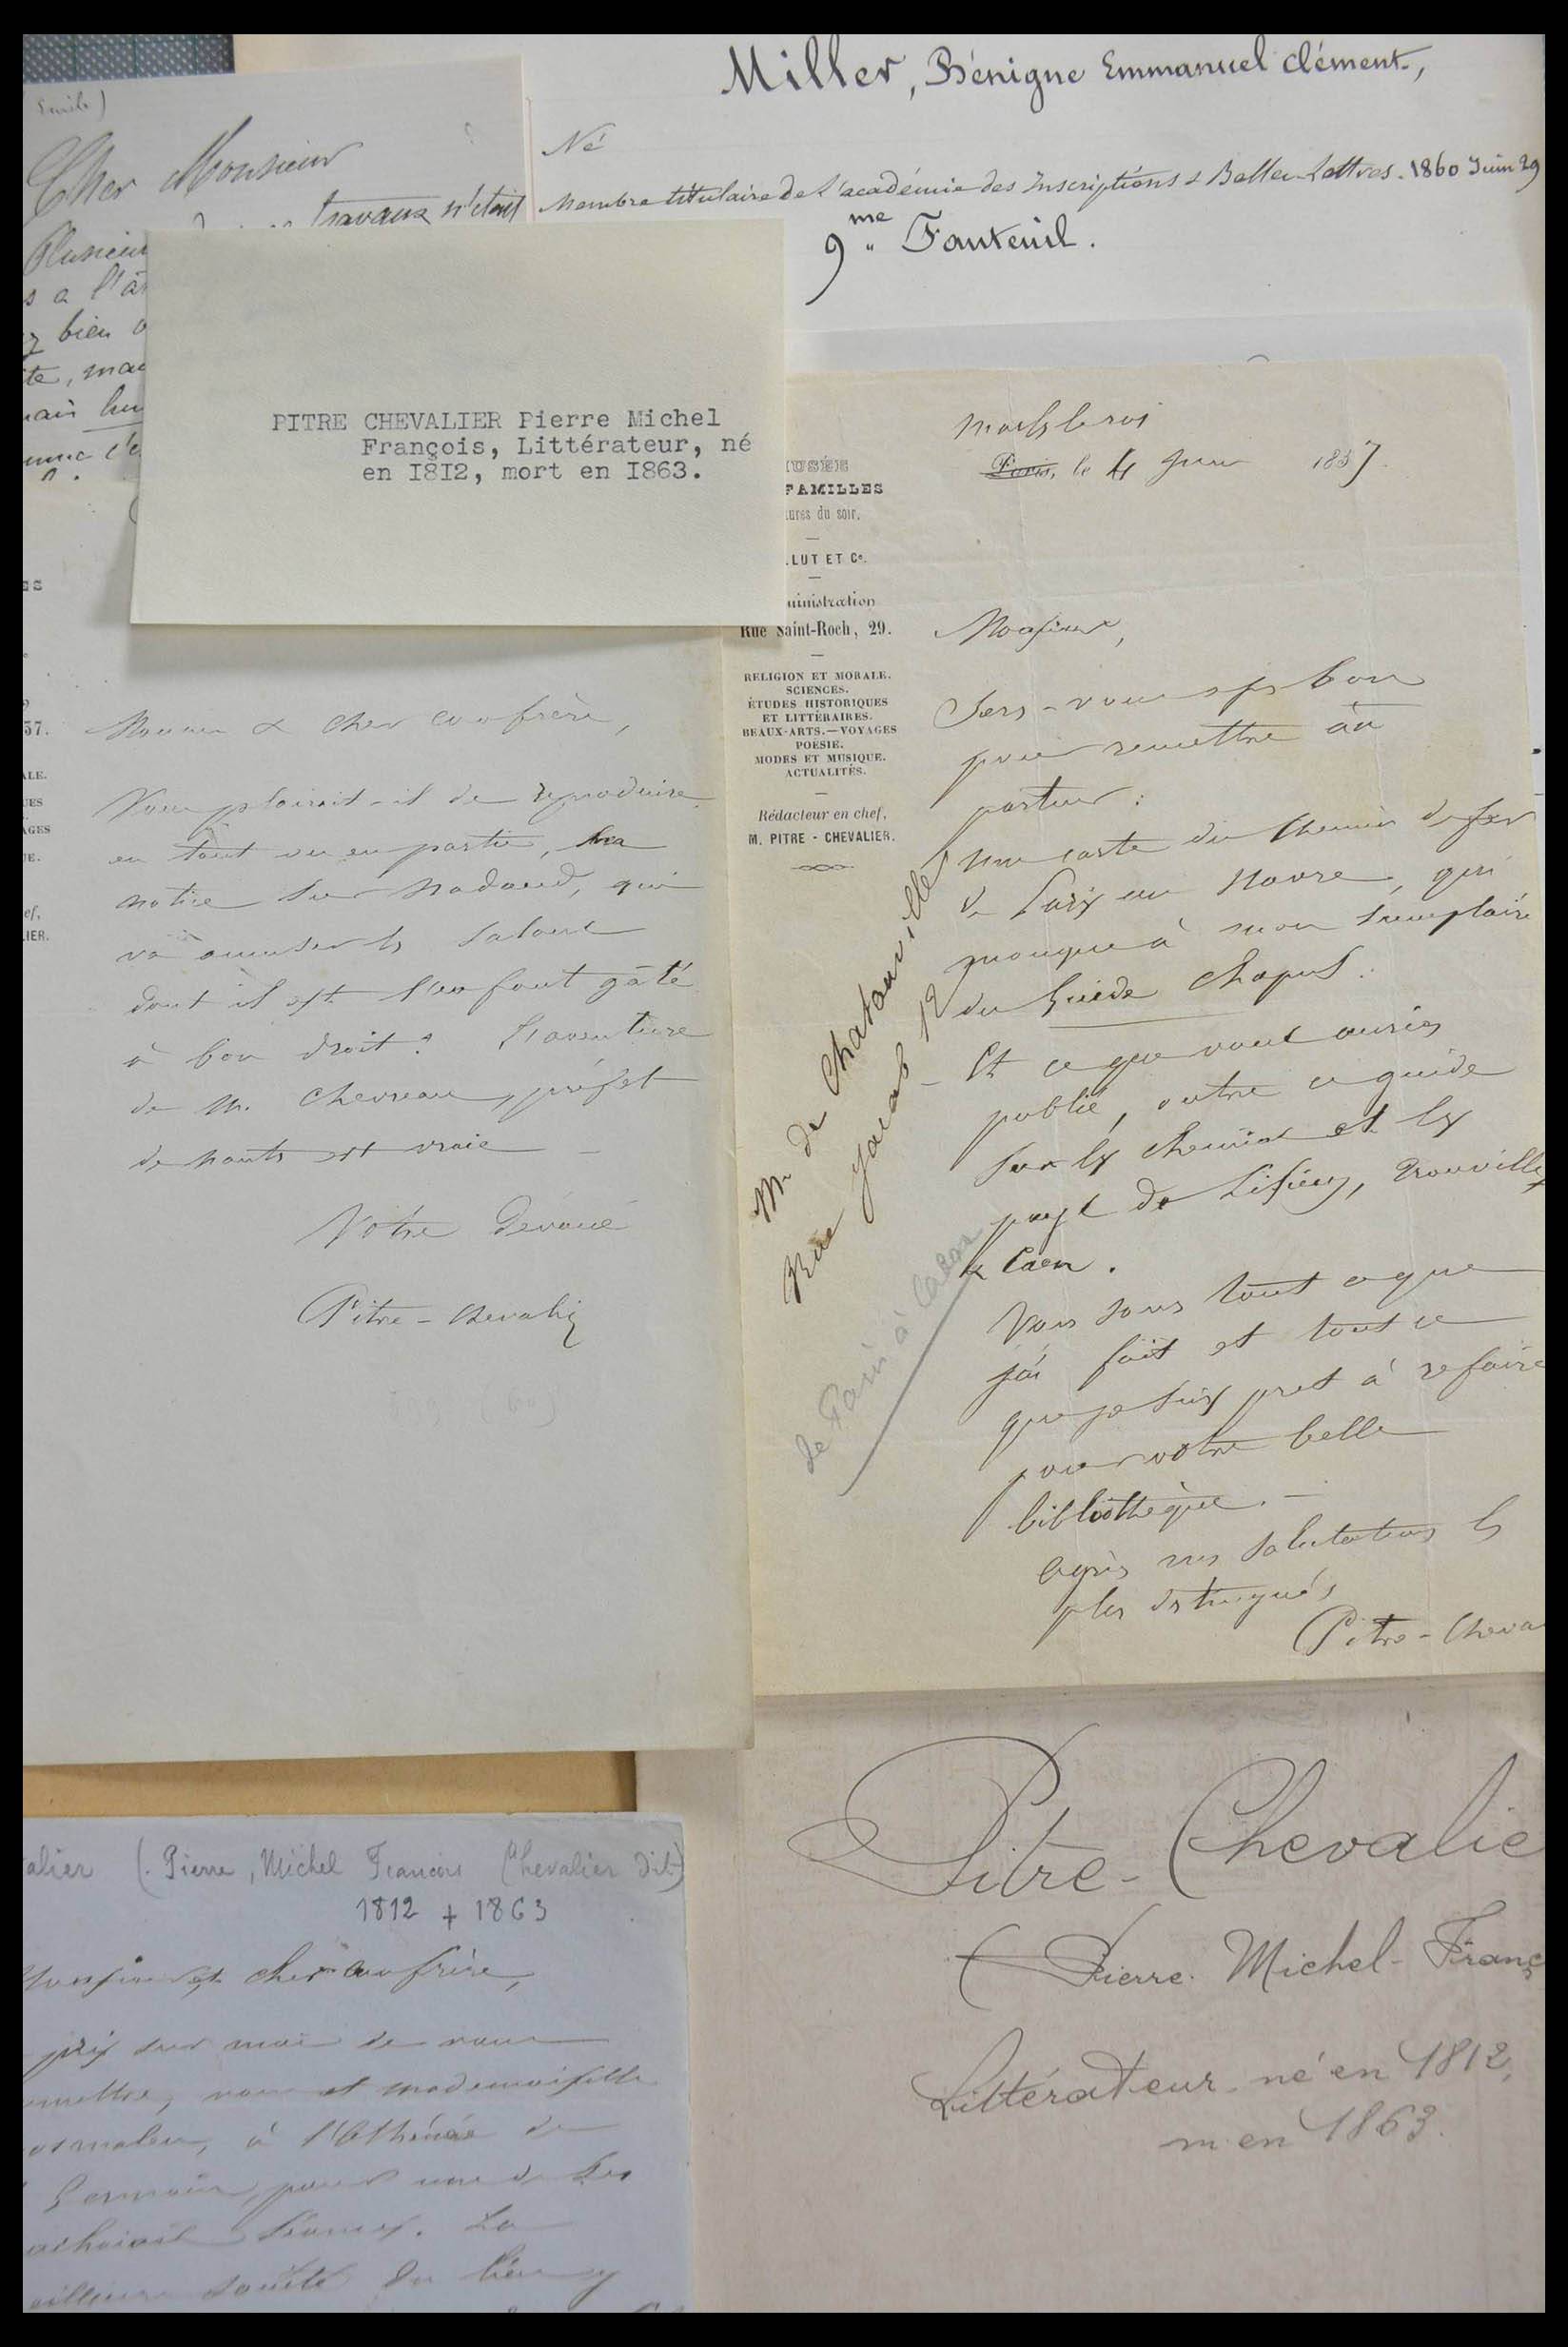 Miller, Bénigne Emmanuel Clément,
Né
Membre titulaire de l'académie des Inscriptions & Belles Lettres. 1860 Juin 29
9me Fauteuil.
Cher Monsieur
travaux n'était
Plusieur
s a l'â
bien
te, mai
PITRE CHEVALIER Pierre Michel
François, Littérateur, né
en I8I2, mort en I863.
USÉE
FAMILLES
tures du soir.
LUT ET Ce.
ministration
Rue Saint-Roch, 29.
RELIGION ET MORALE.
SCIENCES.
ÉTUDES HISTORIQUES
ET LITTÉRAIRES.
BEAUX-ARTS.—VOYAGES
POÉSIE.
MODES ET MUSIQUE.
ACTUALITÉS.
Rédacteur en chef,
M. PITRE-CHEVALIER.
Paris, le 4 Juin 1857.
Monsieur,
bon
pour remettre au
porteur :
une carte du chemin de fer
de Paris au Havre, qui
manque à mon exemplaire
du Guide Chapus.
Et ce que vous auriez
publié, outre ce guide
sur les chemins et les
pays de Lisieux, Trouville
& Caen.
tout ce que
j'ai fait et tout ce
que je suis prêt à refaire
pour votre belle
bibliothèque. —
agréez mes salutations les
plus distinguées
Pitre-Cheva
M. de Chatouville
Rue Jacob 12
de Paris à Caen
57.
ALE.
UES
AGES
IE.
ef,
LIER.
& cher confrère,
Vous plairait-il de reproduire
en tout ou en partie, ma
notice sur Nadaud, qui
va amuser les salons
dont il est l'enfant gâté
à bon droit? L'aventure
de M. Chevreau, préfet
de Nantes est vraie —
Votre dévoué
Pitre-Chevalier
alier (Pierre, Michel François Chevalier dit)
1812 + 1863
Monsieur et cher confrère,
pris sur moi de vous
mettre, vous et mademoiselle
à l'Athénée de
Germain, pour une de ses
séances. La
société
Pitre-Chevalie
(Pierre-Michel-Franç
Littérateur, né en 1812,
m. en 1863.